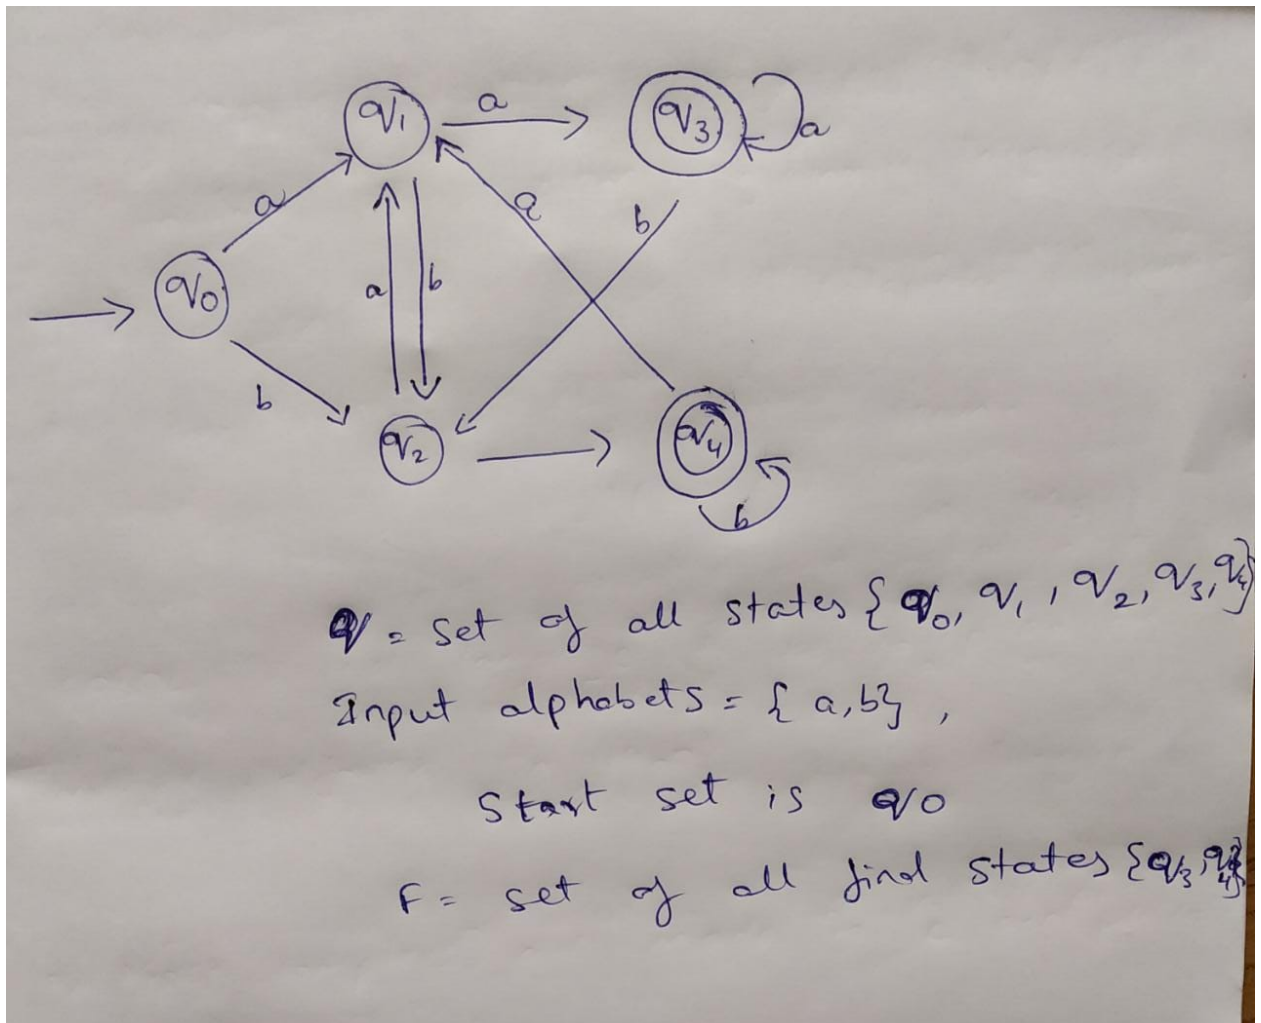 q1 a q3 a
a a b
q0 a b
b
q2 q4
b
q = set of all states { q0, q1, q2, q3, q4}
Input alphabets = { a, b},
Start set is q0
F = set of all find states {q3, q4}